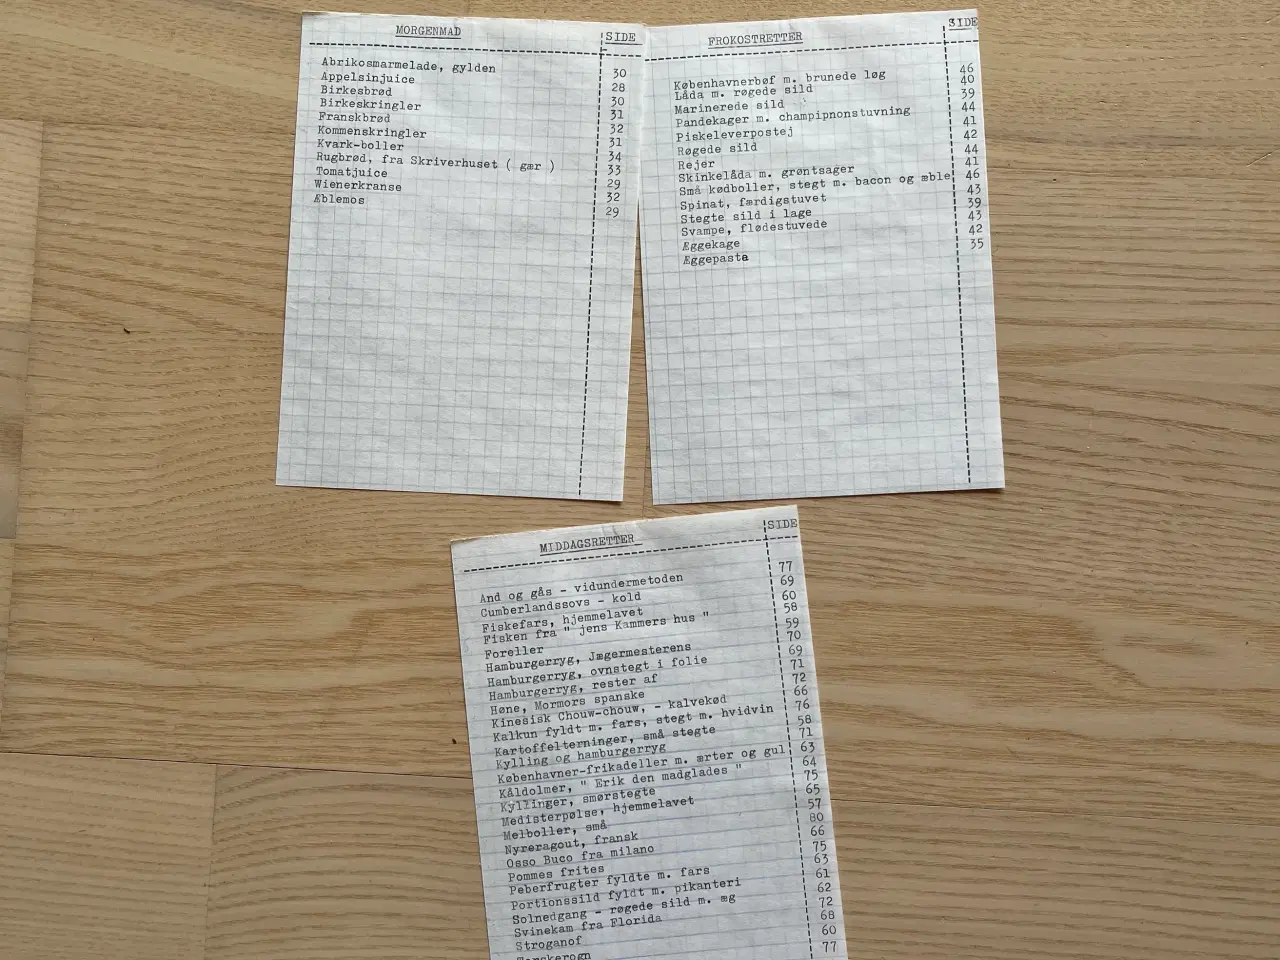 MORGENMAD SIDE
Abrikosmarmelade, gylden 30
Appelsinjuice 28
Birkesbrød 30
Birkeskringler 31
Franskbrød 32
Kommenskringler 31
Kvark-boller 34
Rugbrød, fra Skriverhuset ( gær ) 33
Tomatjuice 29
Wienerkranse 32
Æblemos 29
FROKOSTRETTER SIDE
Københavnerbøf m. brunede løg 46
Låda m. røgede sild 40
Marinerede sild 39
Pandekager m. champipnonstuvning 44
Piskeleverpostej 41
Røgede sild 42
Rejer 44
Skinkelåda m. grøntsager 41
Små kødboller, stegt m. bacon og æble 46
Spinat, færdigstuvet 43
Stegte sild i lage 39
Svampe, flødestuvede 43
Æggekage 42
Æggepasta 35
MIDDAGSRETTER SIDE
And og gås - vidundermetoden 77
Cumberlandssovs - kold 69
Fiskefars, hjemmelavet 60
Fisken fra " jens Kammers hus " 58
Foreller 59
Hamburgerryg, Jægermesterens 70
Hamburgerryg, ovnstegt i folie 69
Hamburgerryg, rester af 71
Høne, Mormors spanske 72
Kinesisk Chouw-chouw, - kalvekød 66
Kalkun fyldt m. fars, stegt m. hvidvin 76
Kartoffelterninger, små stegte 58
Kylling og hamburgerryg 71
Københavner-frikadeller m. ærter og gul 63
Kåldolmer, " Erik den madglades " 64
Kyllinger, smørstegte 75
Medisterpølse, hjemmelavet 65
Melboller, små 57
Nyreragout, fransk 80
Osso Buco fra milano 66
Pommes frites 75
Peberfrugter fyldte m. fars 63
Portionssild fyldt m. pikanteri 61
Solnedgang - røgede sild m. æg 62
Svinekam fra Florida 72
Stroganof 68
Torskerogn 60
77